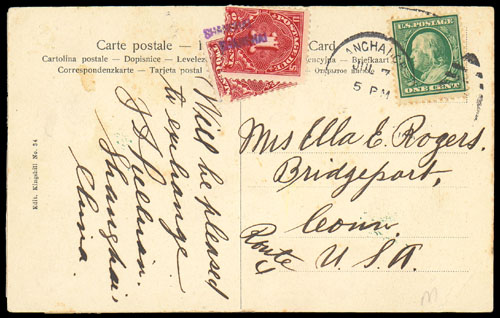 Carte postale
Card
Cartolina postale – Dopisnice – Levelez
Briefkaart
Correspondenzkarte – Tarjeta postal
SHANGHAI
POSTAGE DUE
U.S. POSTAGE
ONE CENT
JUL 7
5 PM
Will be pleased
to exchange
Shanghai,
China.
Miss Ella E. Rogers.
Bridgeport,
Conn.
Route 4
U.S.A.
Edit. Kingshill No. 24